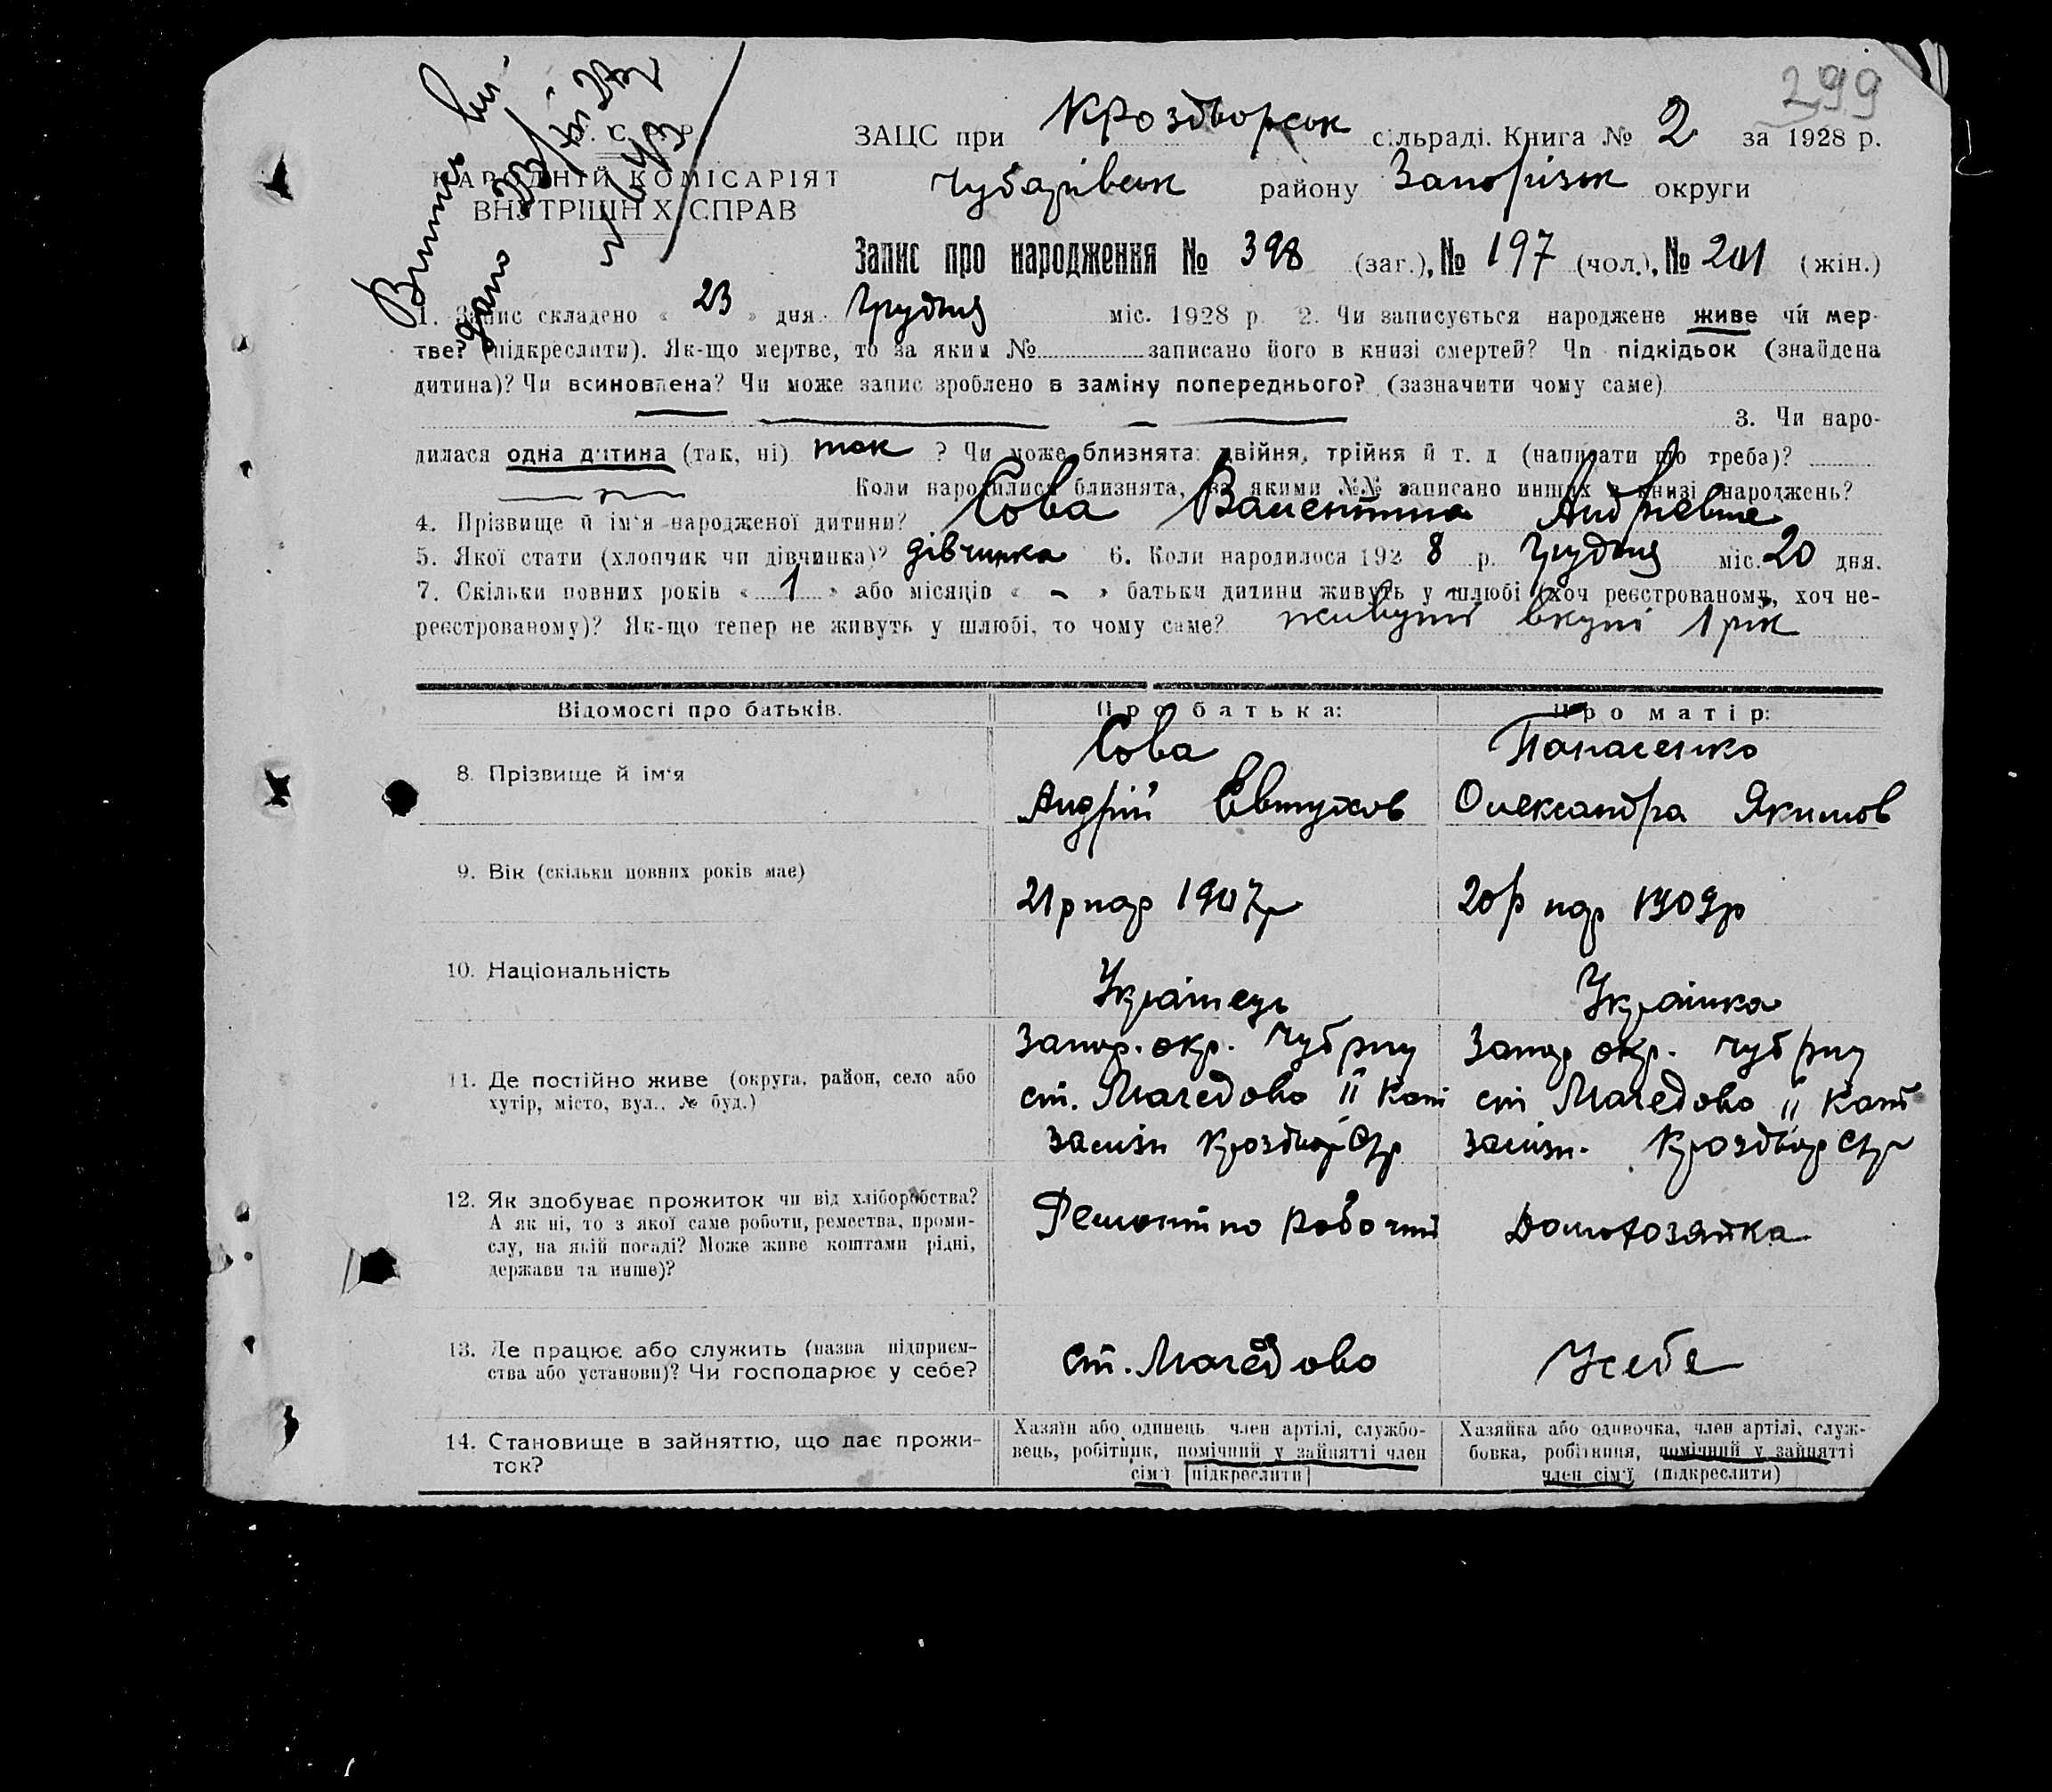 299
У. С. Р. Р.
НАРОДНІЙ КОМІСАРІЯТ
ВНУТРІШНІХ СПРАВ
ЗАЦС при Кроздворськ сільраді. Книга № 2 за 1928 р.
Чубарівськ району Запорізьк округи
Запис про народження № 398 (заг.), № 197 (чол.), № 201 (жін.)
1. Запис складено « 23 » дня Грудня міс. 1928 р. 2. Чи записується народжене живе чи мер-
тве? (підкреслити). Як-що мертве, то за яким № записано його в книзі смертей? Чи підкідьок (знайдена
дитина)? Чи всиновлена? Чи може запис зроблено в заміну попереднього? (зазначити чому саме)
3. Чи наро-
дилася одна дитина (так, ні) так ? Чи може близнята: двійня, трійня й т. д (написати що треба)?
Коли народилися близнята, за якими №№ записано инших в книзі народжень?
4. Прізвище й ім‘я народженої дитини? Сова Валентина Андріевна
5. Якої стати (хлопчик чи дівчинка)? дівчинка 6. Коли народилося 192 8 р. Грудня міс. 20 дня.
7. Скільки повних років « 1 » або місяців « - » батьки дитини живуть у шлюбі (хоч реєстрованому, хоч не-
реєстрованому)? Як-що тепер не живуть у шлюбі, то чому саме? живуть вкупі 1 рік
Відомості про батьків. Про батька: Про матір:
8. Прізвище й ім‘я Сова Панасенко
Андрій Євтухов Олександра Якимов
9. Вік (скільки повних років має) 21 р нар 1907 р 20 р нар 1909 р
10. Національність Українець Українка
Запор. окр. Чуб рну Запор окр. Чуб рну
11. Де постійно живе (округа, район, село або ст. Магедово II Кат ст Магедово II Кат
хутір, місто, вул., № буд.)
залізн Кроздвор с/р залізн. Кроздвор с/р
12. Як здобуває прожиток чи від хліборобства? Ремонтно робочий Домохозяйка
А як ні, то з якої саме роботи, ремества, проми-
слу, на якій посаді? Може живе коштами рідні,
держави та инше)?
13. Де працює або служить (назва підприєм- ст. Магедово У себе
ства або установи)? Чи господарює у себе?
14. Становище в зайняттю, що дає прожи-
ток?
Хазяїн або одинець, член артілі, службо-
вець, робітник, помічний у зайнятті член
сім‘ї (підкреслити)
Хазяйка або одиночка, член артілі, служ-
бовка, робітниця, помічний у зайнятті
член сім‘ї (підкреслити)